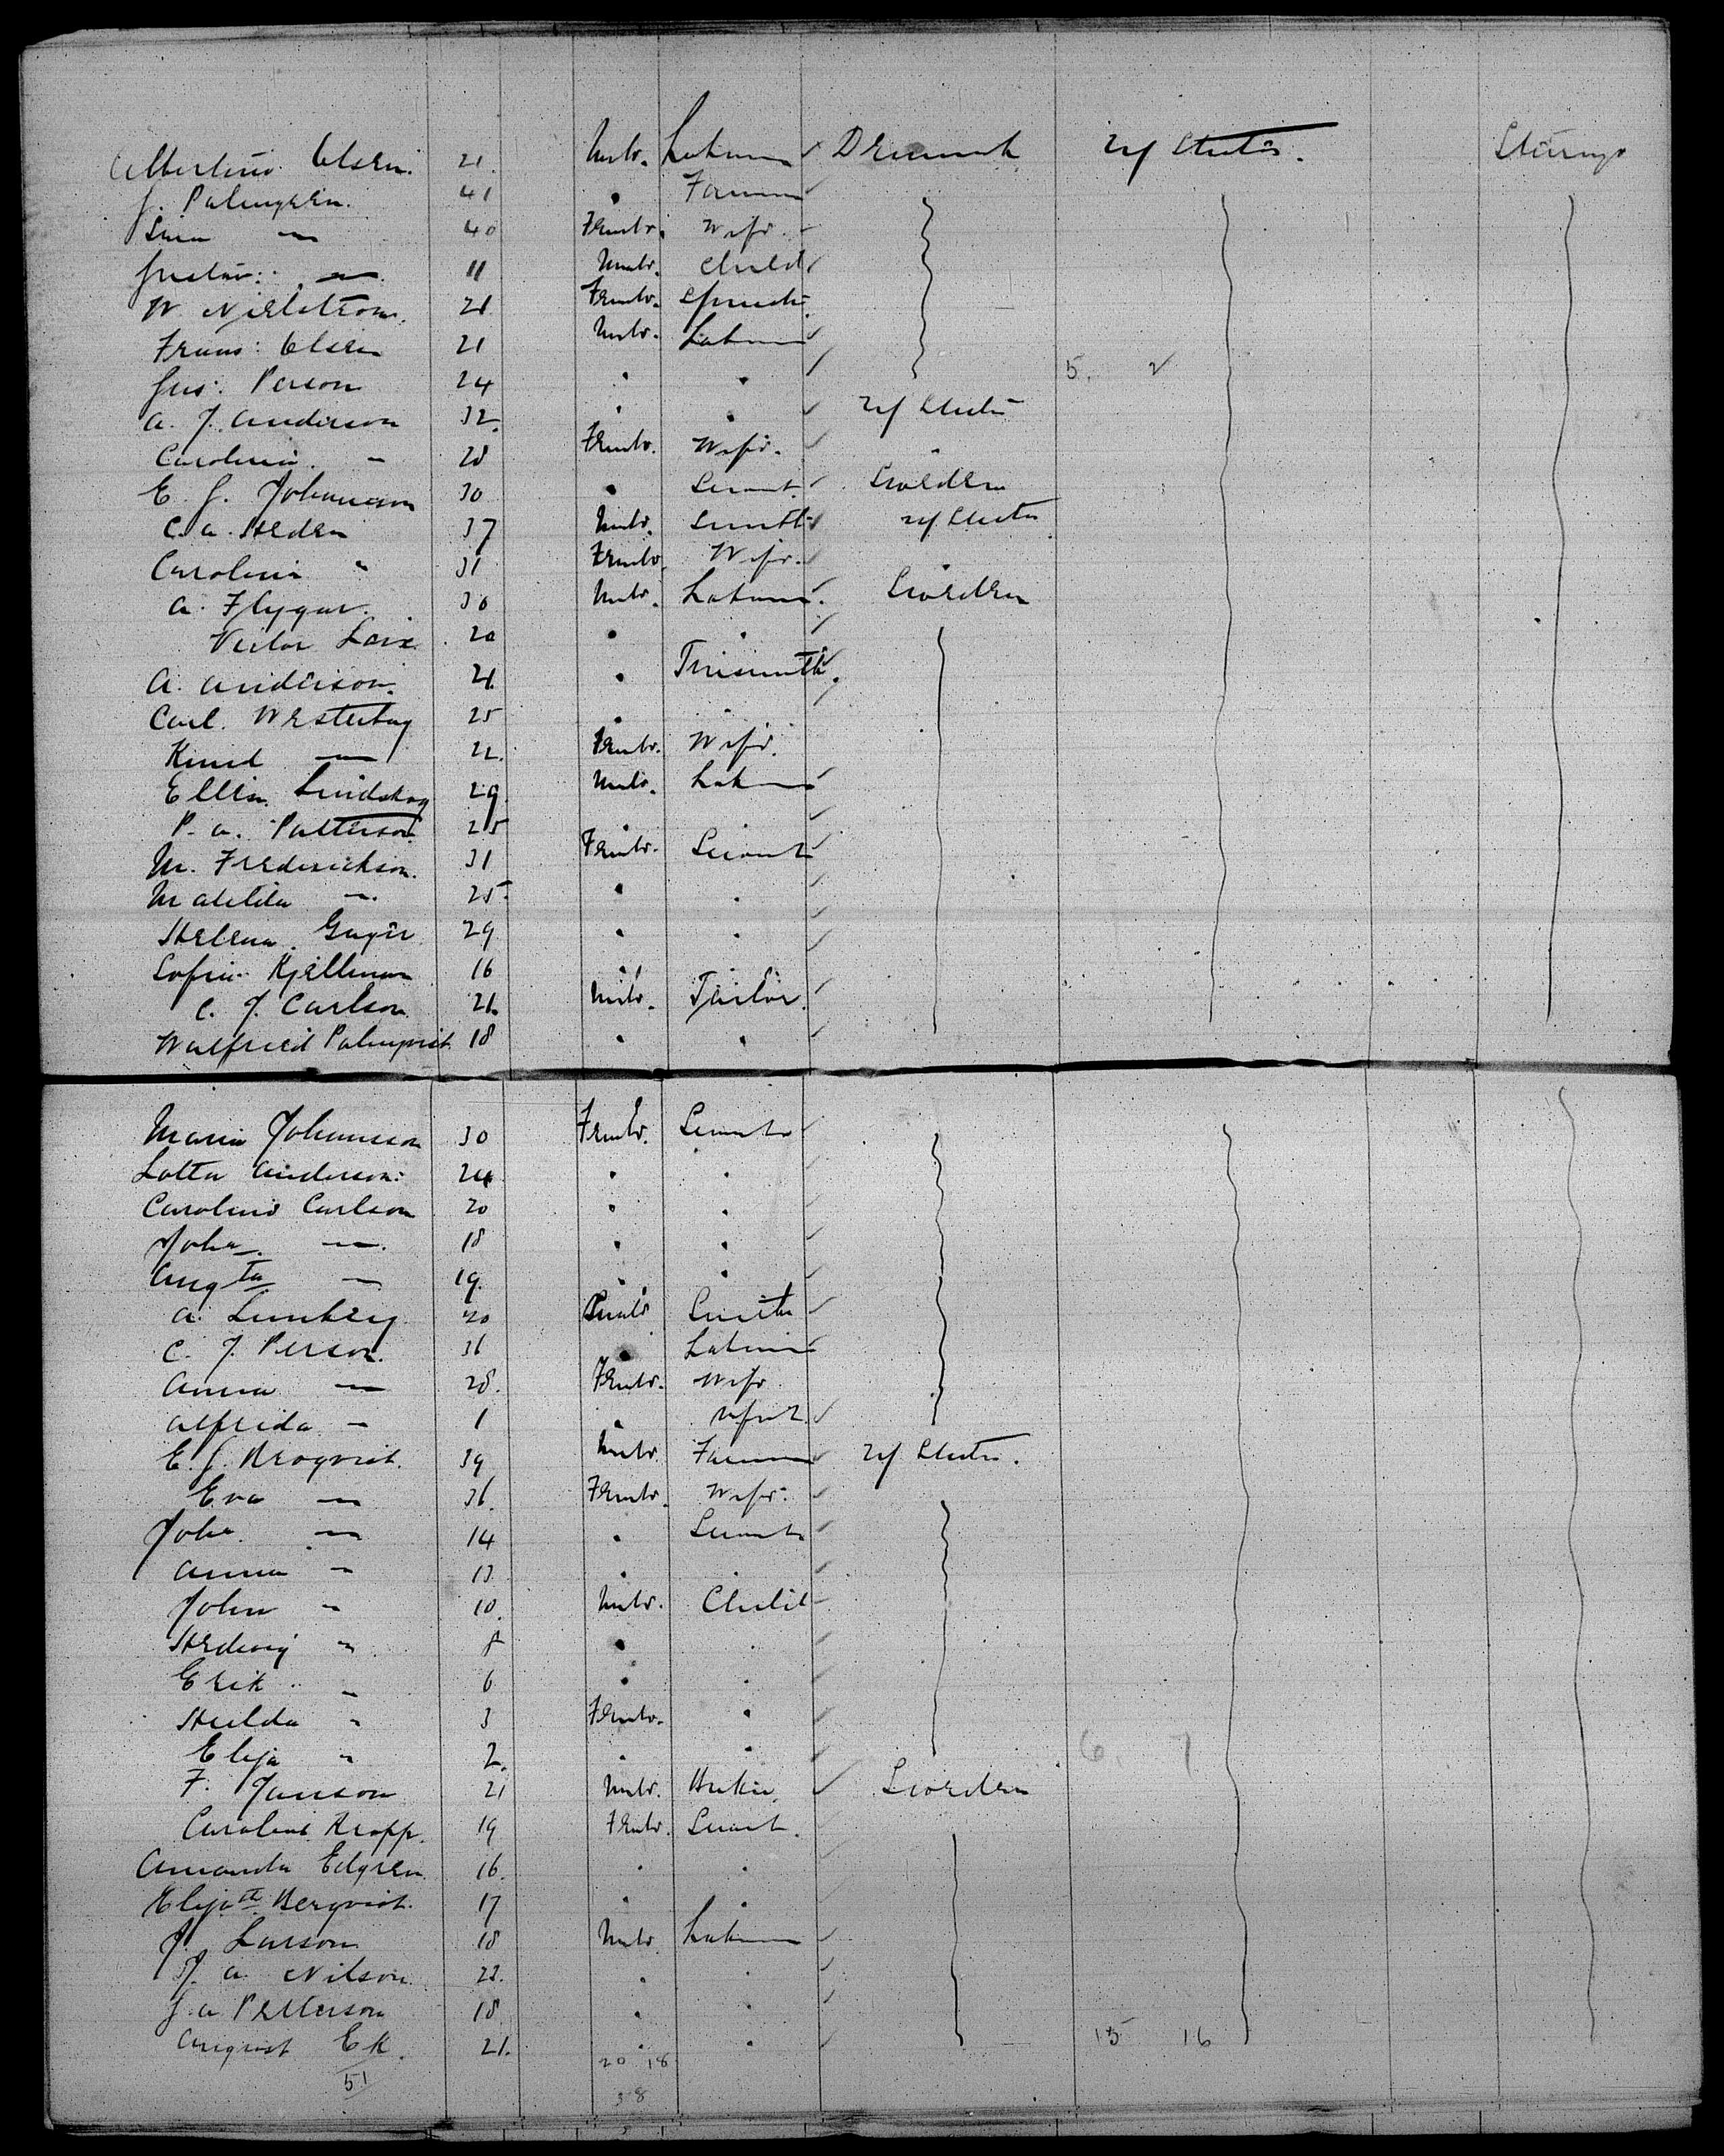 Albertina Olsen. 21. Male. Labourer Denmark U States. Steerage
J. Palmgren. 41 " Farmer
Lina " 40 Female. Wife.
Gustav: " 11 Male. Child
W. Njelstrom. 21 Female. Spinster
Frans: Olsen 21 Male. Labourer
Gus: Person 24 " " 5. 2
A. J. Anderson 32. " " U States
Carolina. " 28 Female. Wife. "
E. G. Johanson 30 " Servant. Sweden
C. A. Heden 37 Male. Smith U States
Carolina " 31 Female Wife. "
A. Flygar. 36 Male. Labourer. Sweden
Victor 20 " "
A. Anderson. 21. " Tinsmith.
Carl. Westerberg 25 " "
" 22. Female. Wife.
Ellen. Lindskog 29. Male. Labourer
P. A. Patterson. 25 " "
M. Frederickson. 31 Female. Servant
Matilda " 25. " "
Helena. 29 " "
Sofia. Kjellman 16 " "
C. J. Carlson 21. Male. Tailor.
Walfried Palmqvist. 18 " "
Maria Johansson 30 Female. Servant
Lotta Anderson: 24. " "
Carolina Carlson 20 " "
Joha. " 18 " "
Augta " 19. " "
A. Lundberg 20 Male Smith
C. J. Person. 36 " Labourer
Anna " 28. Female. Wife
Alfrida " 1 " Infant.
E. G. Kroqvist. 39 Male. Farmer U States.
Eva " 36. Female. Wife.
Joha. " 14 " Servant
Anna " 13 " "
John " 10. Male. Child
Hedwig " 8 " "
Erik " 6 " "
Hulda " 3 Female. "
Eliza " 2. " " 6. 7
F. Janson 21 Male. Baker. Sweden
Carolina Kropp. 19 Female. Servant.
Amanda Edgren. 16. " "
Elizath Bergvist. 17 " "
J. Larson 18 Male Labourer
J. A. Nilson. 22. " "
J. A. Petterson 18 " "
August Ek. 21. " " 15 16
51 20 18
38